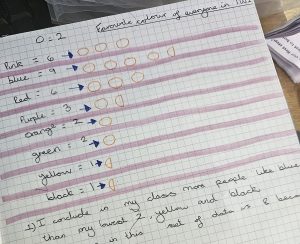 Favourite colour of everyone in
O = 2
Pink = 6
blue = 9
Red = 6
Purple = 3
Orange = 2
green = 2
yellow = 1
black = 1
I conclude in my class more people like blue
than my lowest 2, yellow and black
in this set of data is 8